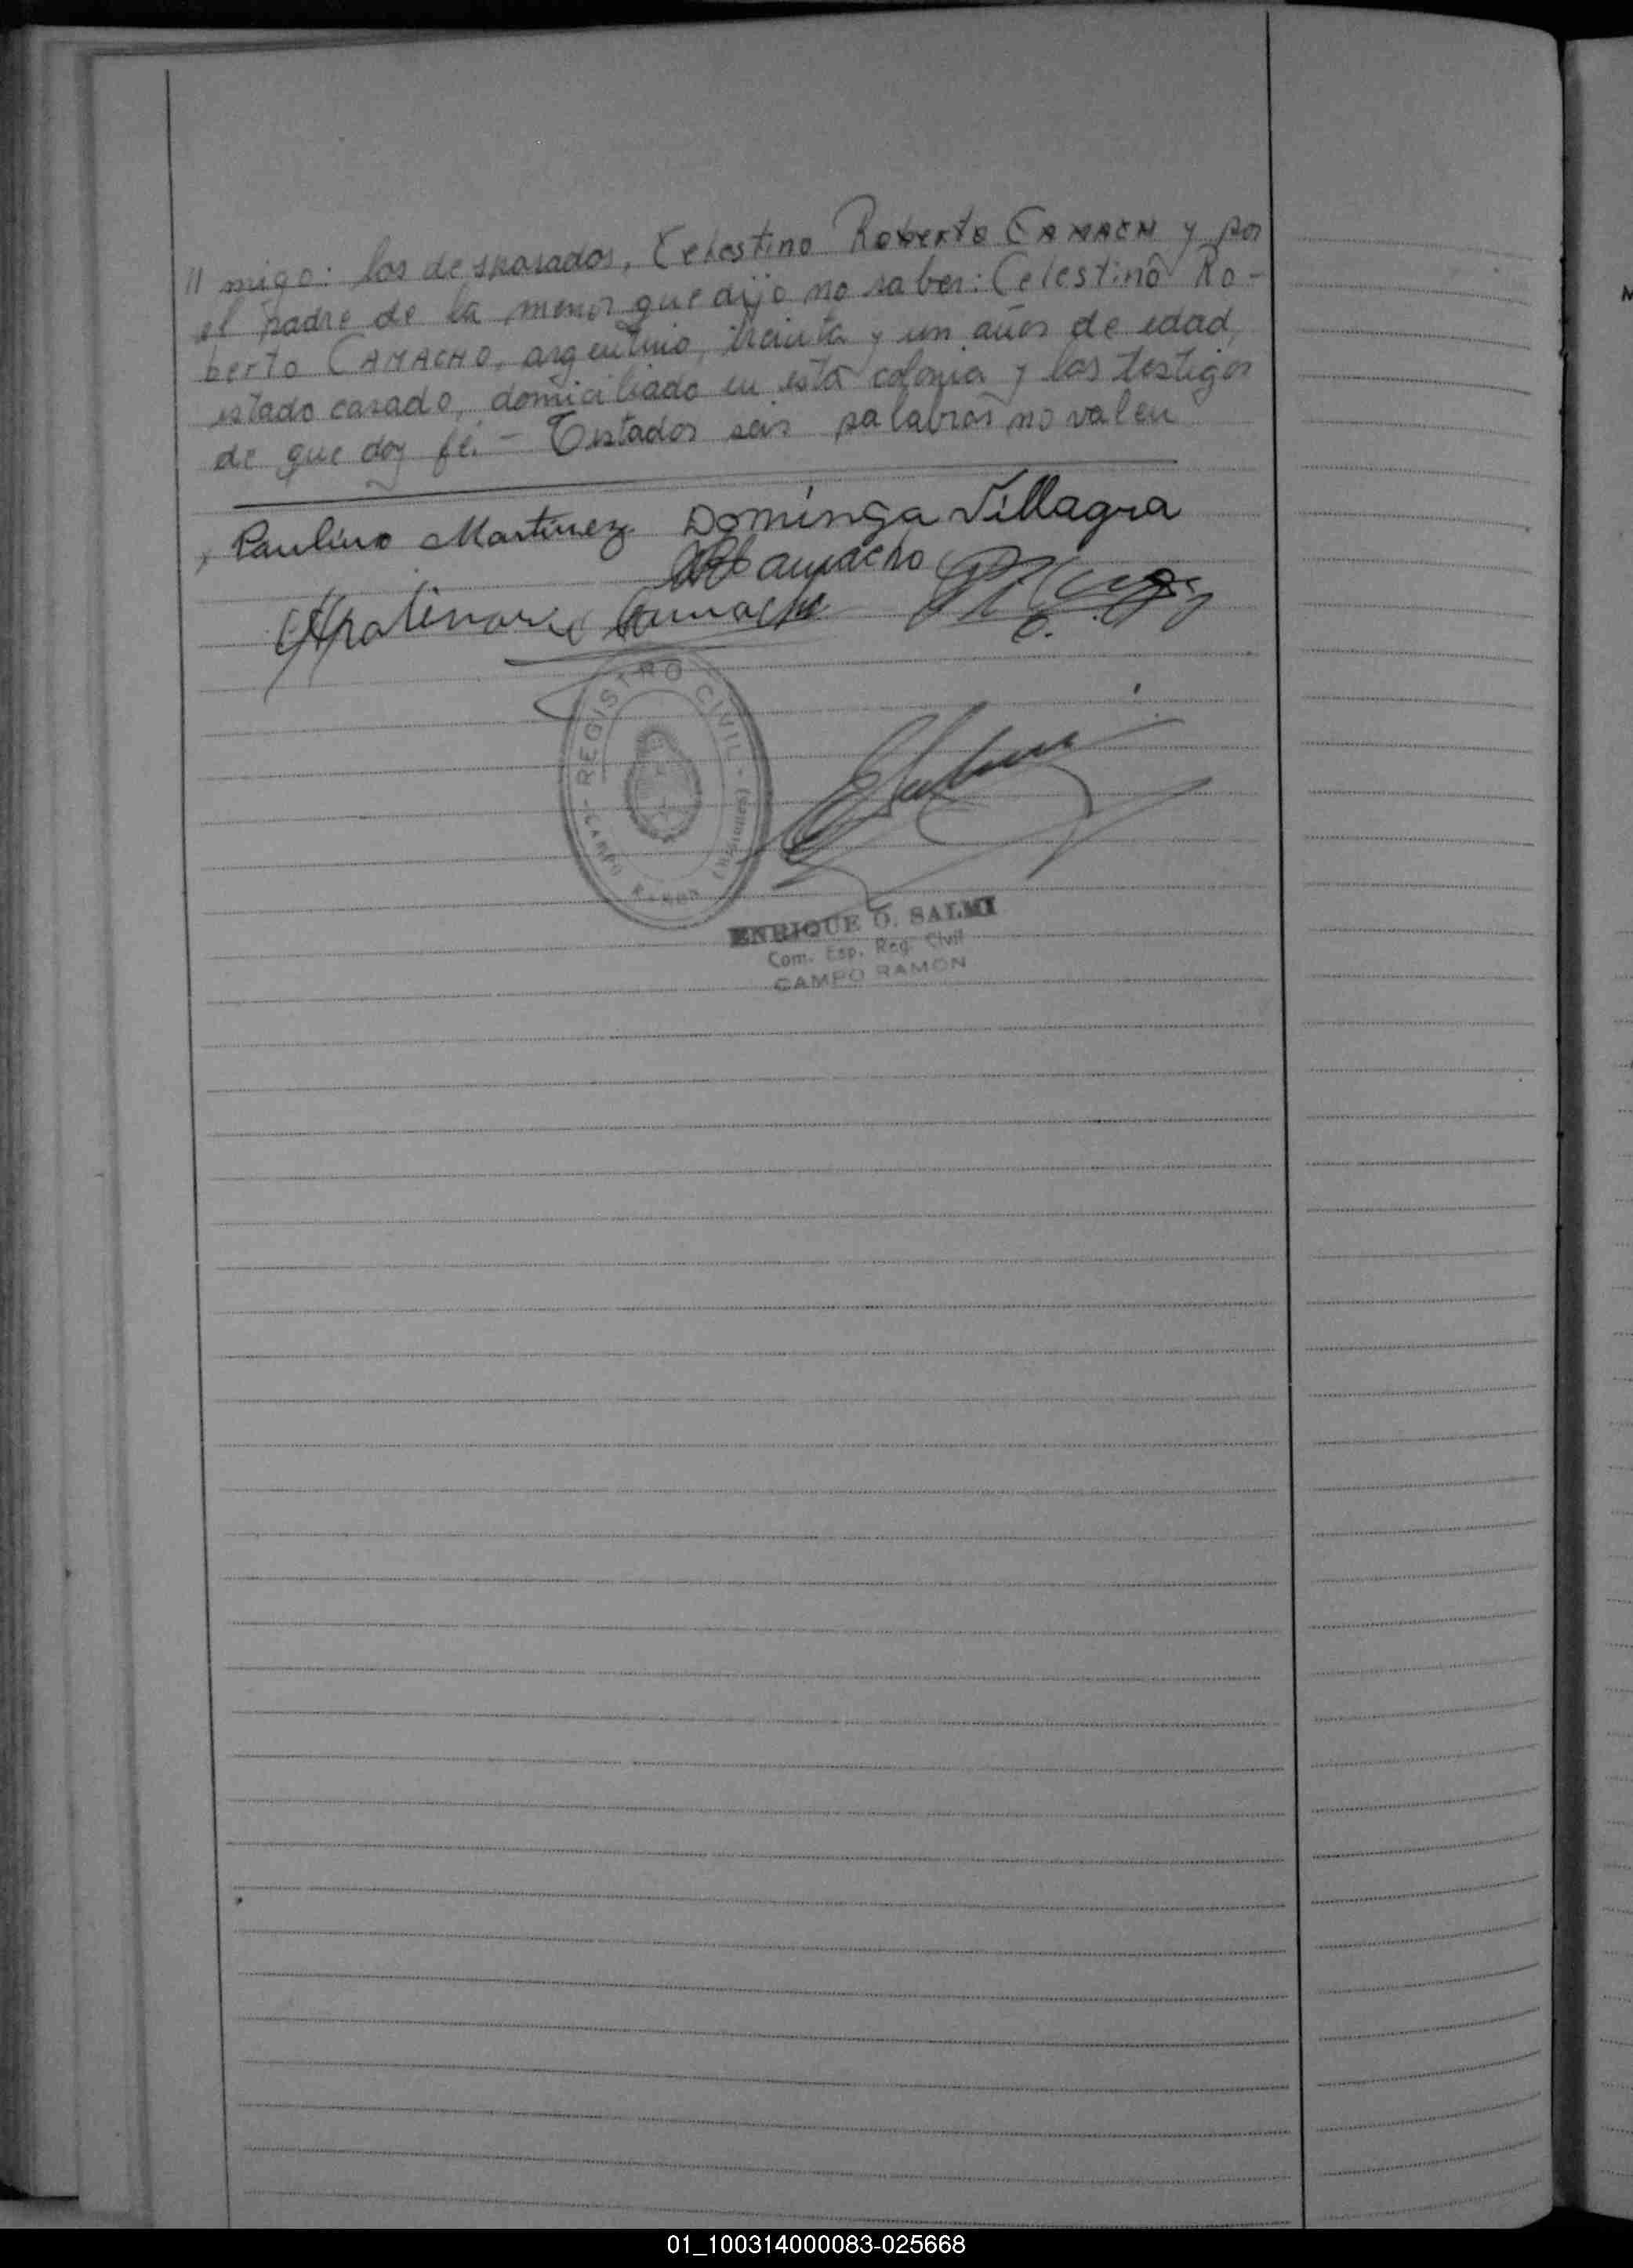 // migo: los desposados, Celestino Roberto CAMACH y por
el padre de la menor que dijo no saber: Celestino Ro-
berto CAMACHO, argentino, treinta y un años de edad,
estado casado, domiciliado en esta colonia y los testigos
de que doy fé. - Testados seis palabras no valen
Paulino Martinez Dominga Villagra
Camacho
Apolinario Camacho
REGISTRO CIVIL
CAMPO RAMON (Misiones)
ENRIQUE O. SALMI
Com. Esp. Reg. Civil
CAMPO RAMON
01_100314000083-025668